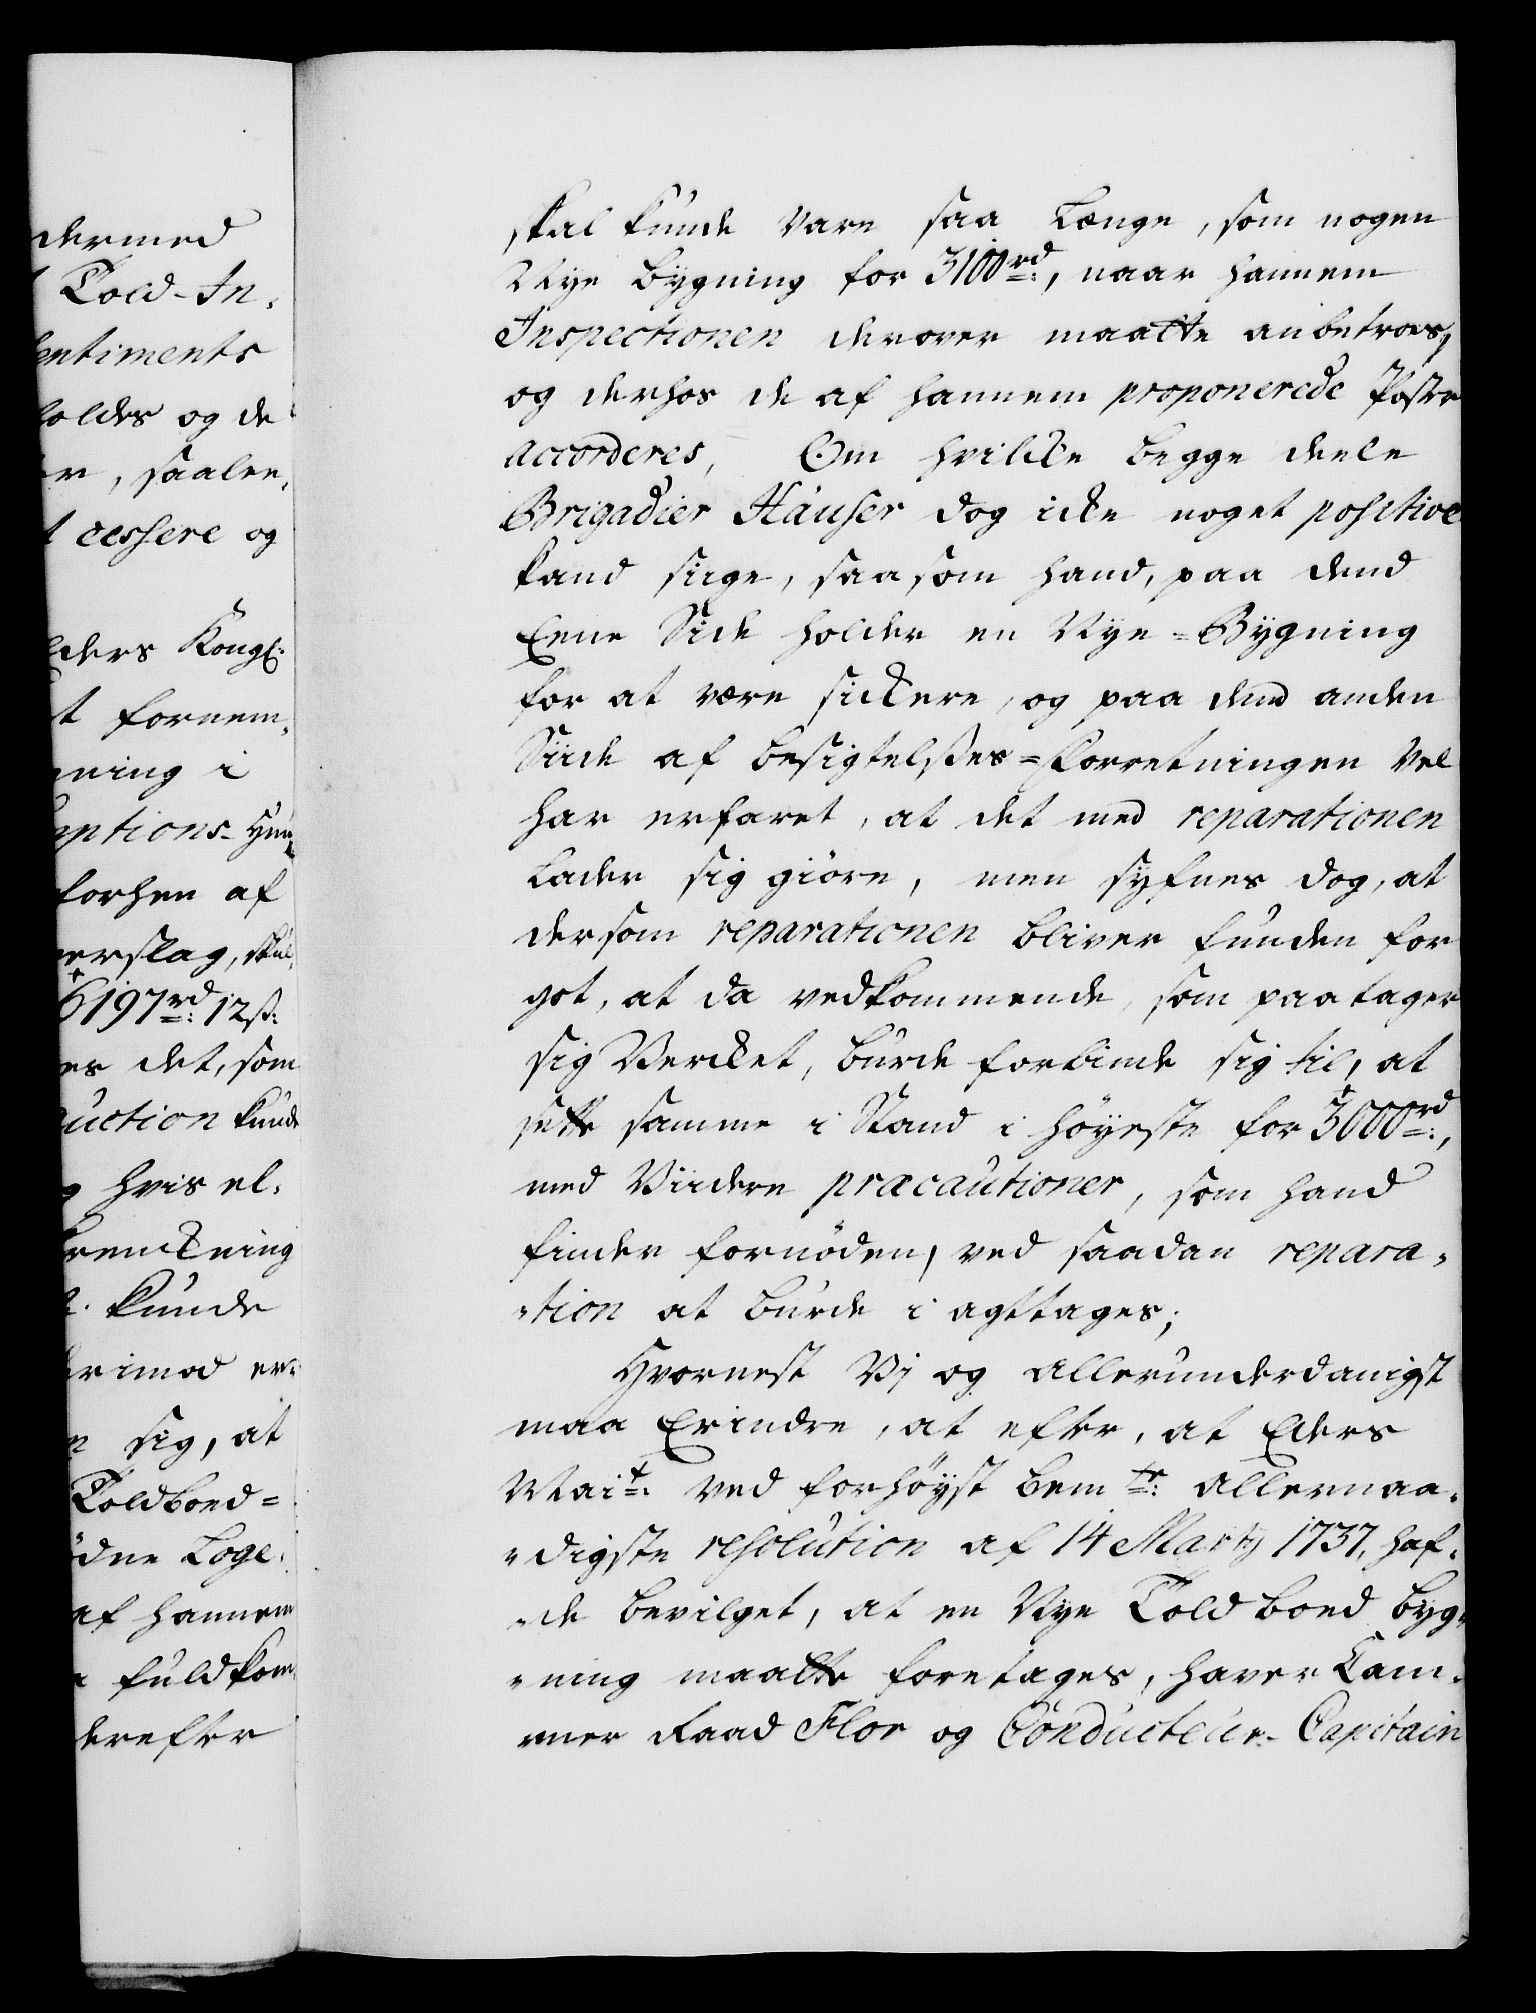 dermed
Told-In-
entiments
oldes og de
er, saalee,
t cessere og
eders Kongl:
t fornem,
ning i
ptions-Huu,
forhen af
erslag, skul,
6197rd: 12ß:
es det, som
uction kunde
hvis el,
krenckning
kunde
erimod er,
sig, at
Toldboed=
ödne Loge,
af hannem
fuldkom,
derefter
skal kunde vare saa Længe, som nogen
Nye bygning for 3100rd:, naar hannem
Inspectionen derover maatte anbetroes,
og derhos de af hannem proponerede Poster
accorderes, Om hvilcke begge deele
Brigadier Häuser dog icke noget positive
kand siige, saasom hand, paa dend
Eene Side holder en Nye=Bygning
for at være sickere, og paa dend anden
Siide af besigtelsses=Forretningen Vel
har erfaret, at det med reparationen
Lader sig giöre, men syfnes dog, at
dersom reparationen bliver funden for
got, at da vedkommende, som paatager
sig Vercket, burde forbinde sig til, at
sette samme i Stand i höyeste for 3000rd:,
med Viidere præcautioner, som hand
finder fornöden, ved saadan repara,
,tion at burde i agttages;
Hvornest Vj og allerunderdanigst
maa Erindre, at efter, at Eders
Mait: ved forhöyst bemte: allernaa,
,digste resolution af 14 Martj 1737, haf,
,de bevilget, at en Nye Toldboed byg,
,ning maatte foretages, haver Cam,
mer Raad Flor og Conducteur-Capitain